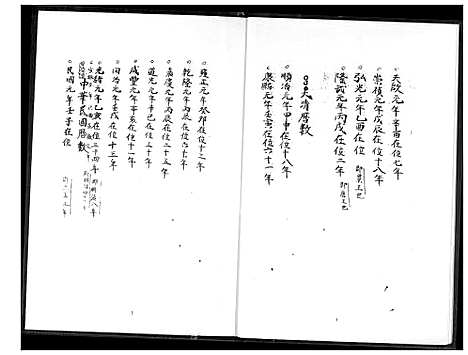 天啟元年辛酉在位七年
崇禎元年戊辰在位十八年
弘光元年乙酉在位
隆武元年丙戌在位二年
大清曆數
順治元年甲申在位十八年
康熙元年壬寅在位六十一年
雍正元年癸卯在位十三年
乾隆元年丙辰在位六十年
嘉慶元年丙辰在位二十五年
道光元年辛巳在位三十年
咸豐元年辛亥在位十一年
同治元年壬戌在位十三年
光緒元年乙亥在位三十四年
中華民國曆數
民國元年壬子在位